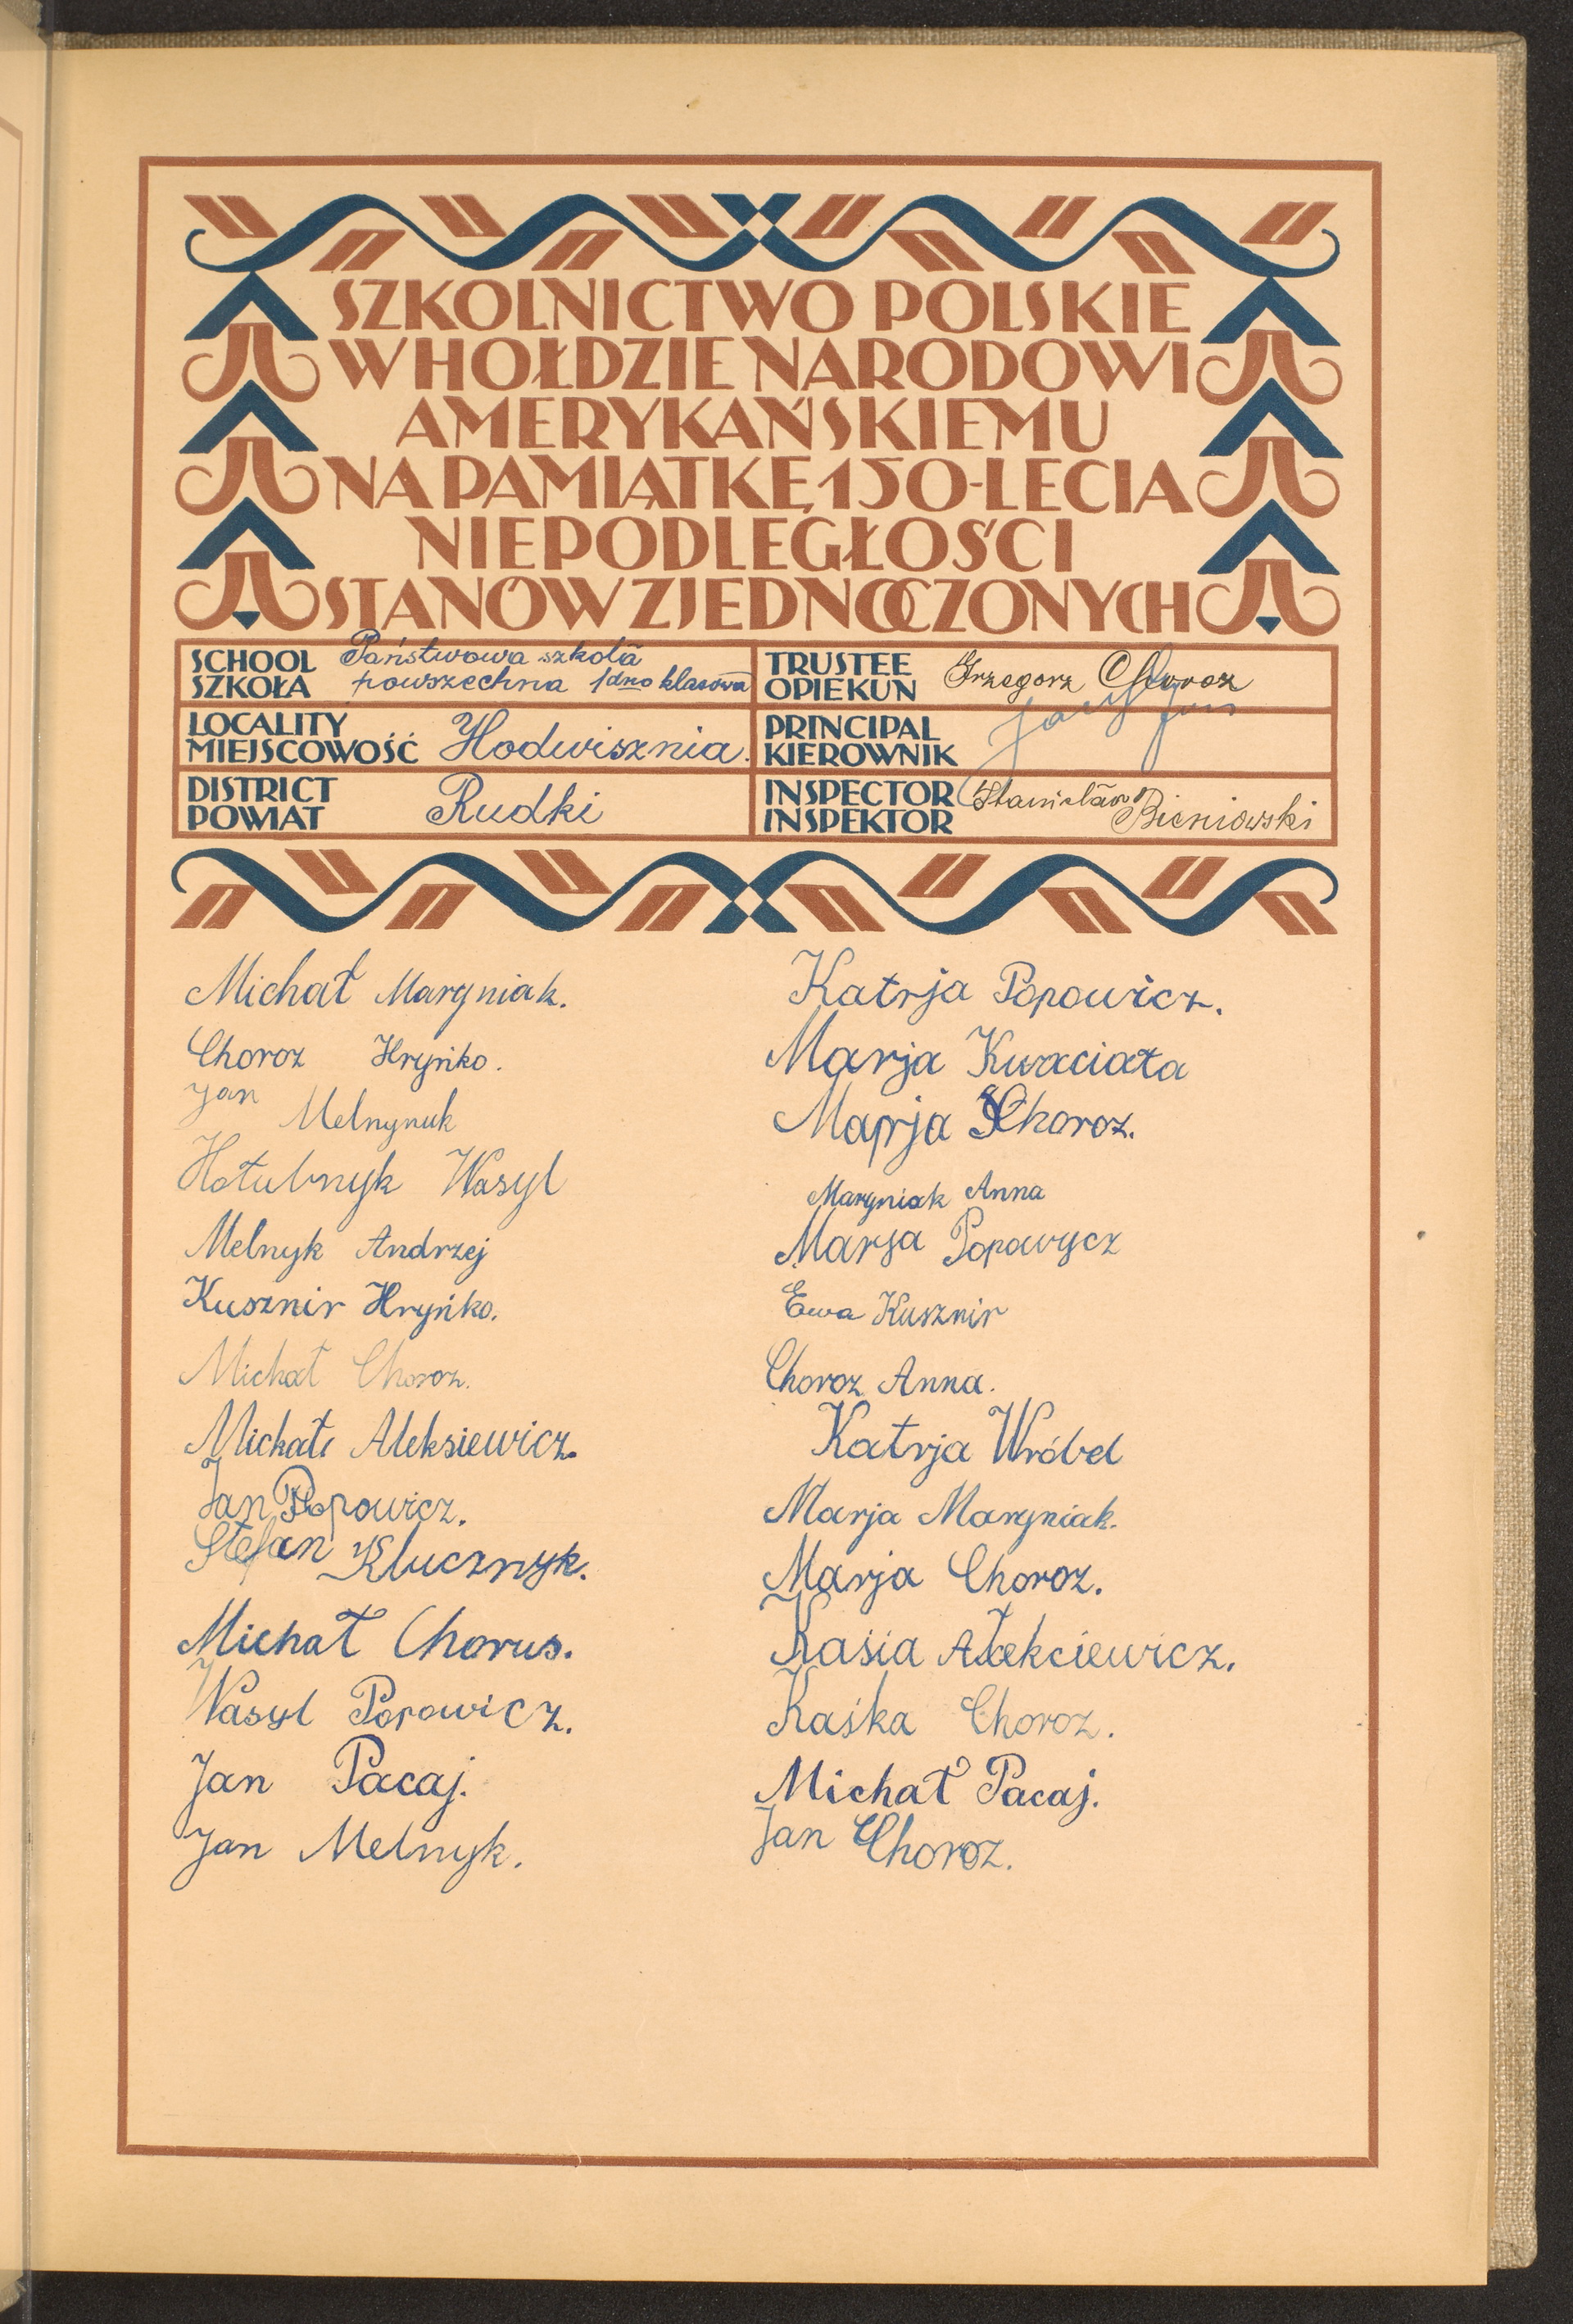 SZKOLNICTWO POLSKIE
W HOŁDZIE NARODOWI
AMERYKAŃSKIEMU
NA PAMIĄTKĘ 150-LECIA
NIEPODLEGŁOŚCI
STANÓW ZJEDNOCZONYCH
SCHOOL
SZKOŁA
Państwowa szkoła
powszechna 1dno klasowa
TRUSTEE
OPIEKUN
Grzegorz Choroz
LOCALITY
MIEJSCOWOŚĆ
Hodwisznia.
PRINCIPAL
KIEROWNIK
DISTRICT
POWIAT
Rudki
INSPECTOR
INSPEKTOR
Stanisław
Bieniowski
Michał Maryniak.
Choroz Hryńko.
Jan Melnynuk
Hołubnyk Wasyl
Melnyk Andrzej
Kusznir Hryńko.
Michał Choroz.
Michał Aleksiewicz.
Jan Popowicz.
Stefan Klucznyk.
Michał Chorus.
Wasyl Popowicz.
Jan Pacaj.
Jan Melnyk.
Katrja Popowicz.
Marja Kwaciała
Marja Choroz.
Maryniak Anna
Marja Popowycz
Ewa Kusznir
Choroz Anna.
Katrja Wróbel
Marja Maryniak.
Marja Choroz.
Kaśia Alekciewicz.
Kaśka Choroz.
Michał Pacaj.
Jan Choroz.